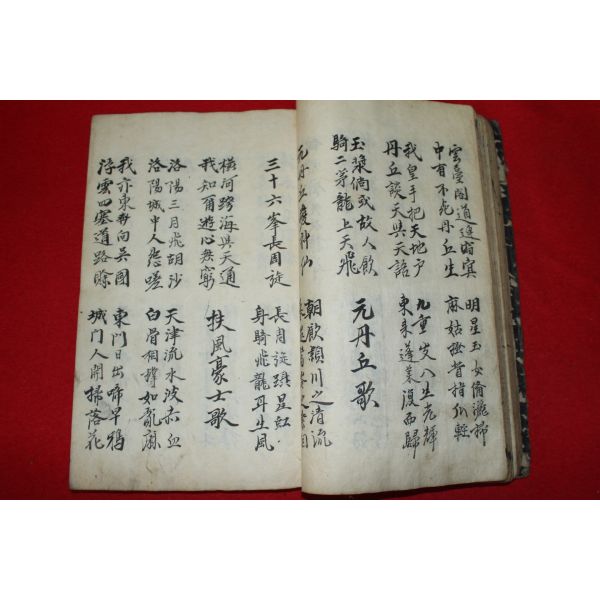 雲臺閣道連窅冥
中有不死丹丘生
明星玉女俻灑掃
麻姑搔背指爪輕
我皇手把天地戶
丹丘談天與天語
九重出入生光輝
東来蓬萊復而歸
玉漿倘或故人飲
騎二茅龍上天飛
元丹丘歌
元丹丘愛神仙
朝飲潁川之清流
三十六峯長周旋
長周旋躡星虹
身騎飛龍耳生風
橫河跨海與天通
我知爾遊心無窮
扶風豪士歌
洛陽三月飛胡沙
洛陽城中人怨嗟
天津流水波赤血
白骨相撐如亂麻
我亦東奔向吳國
浮雲四塞道路賖
東門日出啼早鴉
城門人開掃落花